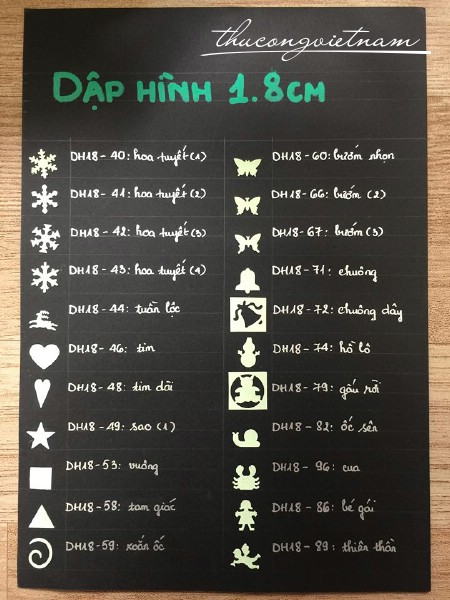 thucongvietnam
DẬP HÌNH 1.8CM
DH18-40: hoa tuyết (1)
DH18-41: hoa tuyết (2)
DH18-42: hoa tuyết (3)
DH18-43: hoa tuyết (4)
DH18-44: tuần lộc
DH18-46: tim
DH18-48: tim dài
DH18-49: sao (1)
DH18-53: vuông
DH18-58: tam giác
DH18-59: xoắn ốc
DH18-60: bướm nhọn
DH18-66: bướm (2)
DH18-67: bướm (3)
DH18-71: chuông
DH18-72: chuông dây
DH18-74: hồ lô
DH18-79: gấu rời
DH18-82: ốc sên
DH18-96: cua
DH18-86: bé gái
DH18-89: thiên thần